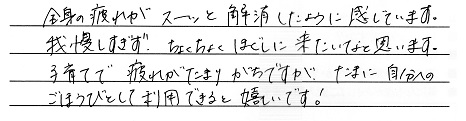 全身の疲れがスーッと解消したように感じています。
我慢しすぎず、ちょくちょくほぐしに来たいなと思います。
子育てで疲れがたまりがちですが、たまに自分への
ごほうびとして利用できると嬉しいです!